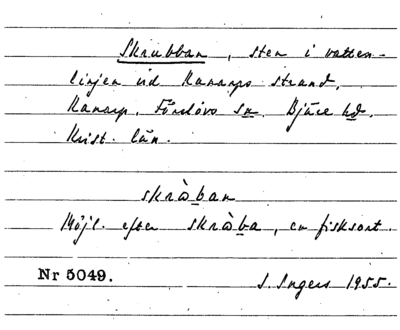 Skrubban, sten i vatten-
linjen vid Ranarps strand,
Ranarp, Förslövs sn. Bjäre hd.
Krist. län.
skrὰban
Möjl. efter skrὰba, en fisksort.
Nr 5049.
S. Ingers 1955.